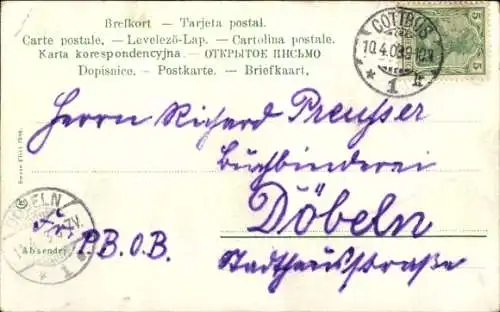 Brefkort — Tarjeta postal.
Carte postale. — Levelező-Lap. — Cartolina postale.
Karta korespondencyjna — ОТКРЫТОЕ ПИСЬМО
Dopisnice. — Postkarte. — Briefkaart.
COTTBUS
10.4.03
* 1 k
5 5
Herrn Richard Preusser
Buchbinderei
Döbeln
Stadthausstraße
DÖBELN
* 1
Absender
P.B.O.B.